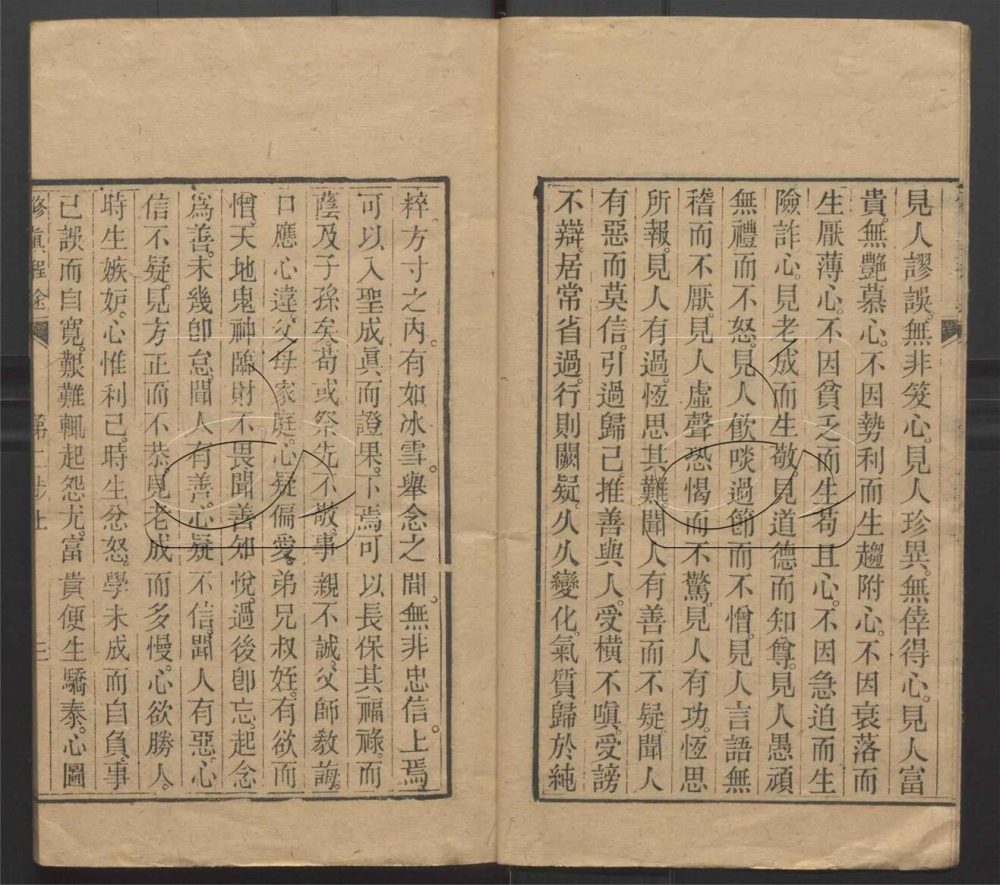 見人謬誤。無非笑心。見人珍異。無倖得心。見人富
貴。無艷慕心。不因勢利而生趨附心。不因衰落而
生厭薄心。不因貧乏而生苟且心。不因急迫而生
險詐心。見老成而生敬。見道德而知尊。見人愚頑
無禮而不怒。見人飲啖過節而不憎。見人言語無
稽而不厭。見人虛聲恐愒而不驚。見人有功。恆思
所報。見人有過。恆思其難。聞人有善而不疑。聞人
有惡而莫信。引過歸己。推善與人。受橫不嗔。受謗
不辯。居常省過。行則闕疑。久久變化。氣質歸於純
粹。方寸之內。有如冰雪。舉念之間。無非忠信。上焉
可以入聖成眞而證果。下焉可以長保其福祿而
蔭及子孫矣。苟或祭先不敬。事親不誠。父師教誨。
口應心違。父母家庭。心疑偏愛。弟兄叔姪。有欲而
憎。天地鬼神。臨財不畏。聞善知悅。過後卽忘。起念
爲善。未幾卽怠。聞人有善。心疑不信。聞人有惡。心
信不疑。見方正而不恭。見老成而多慢。心欲勝人。
時生嫉妒。心惟利己。時生忿怒。學未成而自負。事
已誤而自寬。艱難輒起怨尤。富貴便生驕泰。心圖
修眞程途 第二步上 三